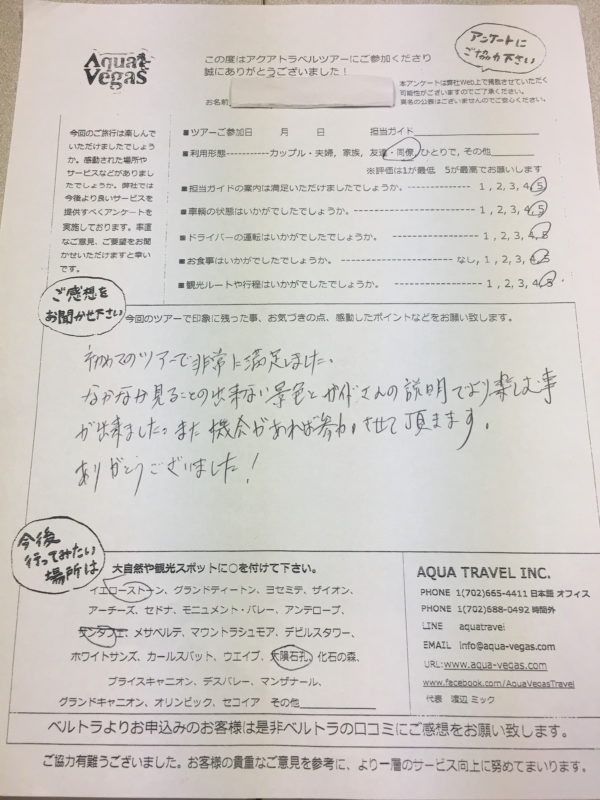 Aqua
Vegas
この度はアクアトラベルツアーにご参加くださり
誠にありがとうございました！
アンケートに
ご協力下さい
本アンケートは弊社Web上で掲載させていただく
可能性がございますのでご了承ください。
実名の公表はございませんのでご安心ください。
お名前
■ツアーご参加日　月　日　担当ガイド
■利用形態-----------カップル・夫婦, 家族, 友達・同僚, ひとりで, その他
※評価は1が最低　5が最高でお願いします
■担当ガイドの案内は満足いただけましたでしょうか。 1 , 2, 3, 4, 5
■車輌の状態はいかがでしたでしょうか。 1 , 2, 3, 4, 5
■ドライバーの運転はいかがでしたでしょうか。 1 , 2, 3, 4, 5
■お食事はいかがでしたでしょうか。 なし, 1 , 2, 3, 4, 5
■観光ルートや行程はいかがでしたでしょうか。 1 , 2, 3, 4, 5
今回のご旅行は楽しんで
いただけましたでしょう
か。感動された場所や
サービスなどがありまし
たでしょうか。弊社では
今後より良いサービスを
提供すべくアンケートを
実施しております。率直
なご意見、ご要望をお聞
かせいただけますと幸い
です。
ご感想を
お聞かせ下さい
今回のツアーで印象に残った事、お気づきの点、感動したポイントなどをお願い致します。
初めてのツアーで非常に満足しました。
なかなか見ることの出来ない景色とガイドさんの説明でより楽しむ事
が出来ました。また機会があれば参加させて頂きます。
ありがとうございました！
今後
行ってみたい
場所は
大自然や観光スポットに○を付けて下さい。
イエローストーン、グランドティートン、ヨセミテ、ザイオン、
アーチーズ、セドナ、モニュメント・バレー、アンテロープ、
サンタフェ、メサベルデ、マウントラシュモア、デビルスタワー、
ホワイトサンズ、カールスバット、ウエイブ、大隕石孔、化石の森、
ブライスキャニオン、デスバレー、マンザナール、
グランドキャニオン、オリンピック、セコイア　その他
AQUA TRAVEL INC.
PHONE 1(702)665-4411 日本語 オフィス
PHONE 1(702)688-0492 時間外
LINE aquatravel
EMAIL info@aqua-vegas.com
URL:www.aqua-vegas.com
www.facebook.com/AquaVegasTravel
代表　渡辺 ミック
ベルトラよりお申込みのお客様は是非ベルトラの口コミにご感想をお願い致します。
ご協力有難うございました。お客様の貴重なご意見を参考に、より一層のサービス向上に努めてまいります。